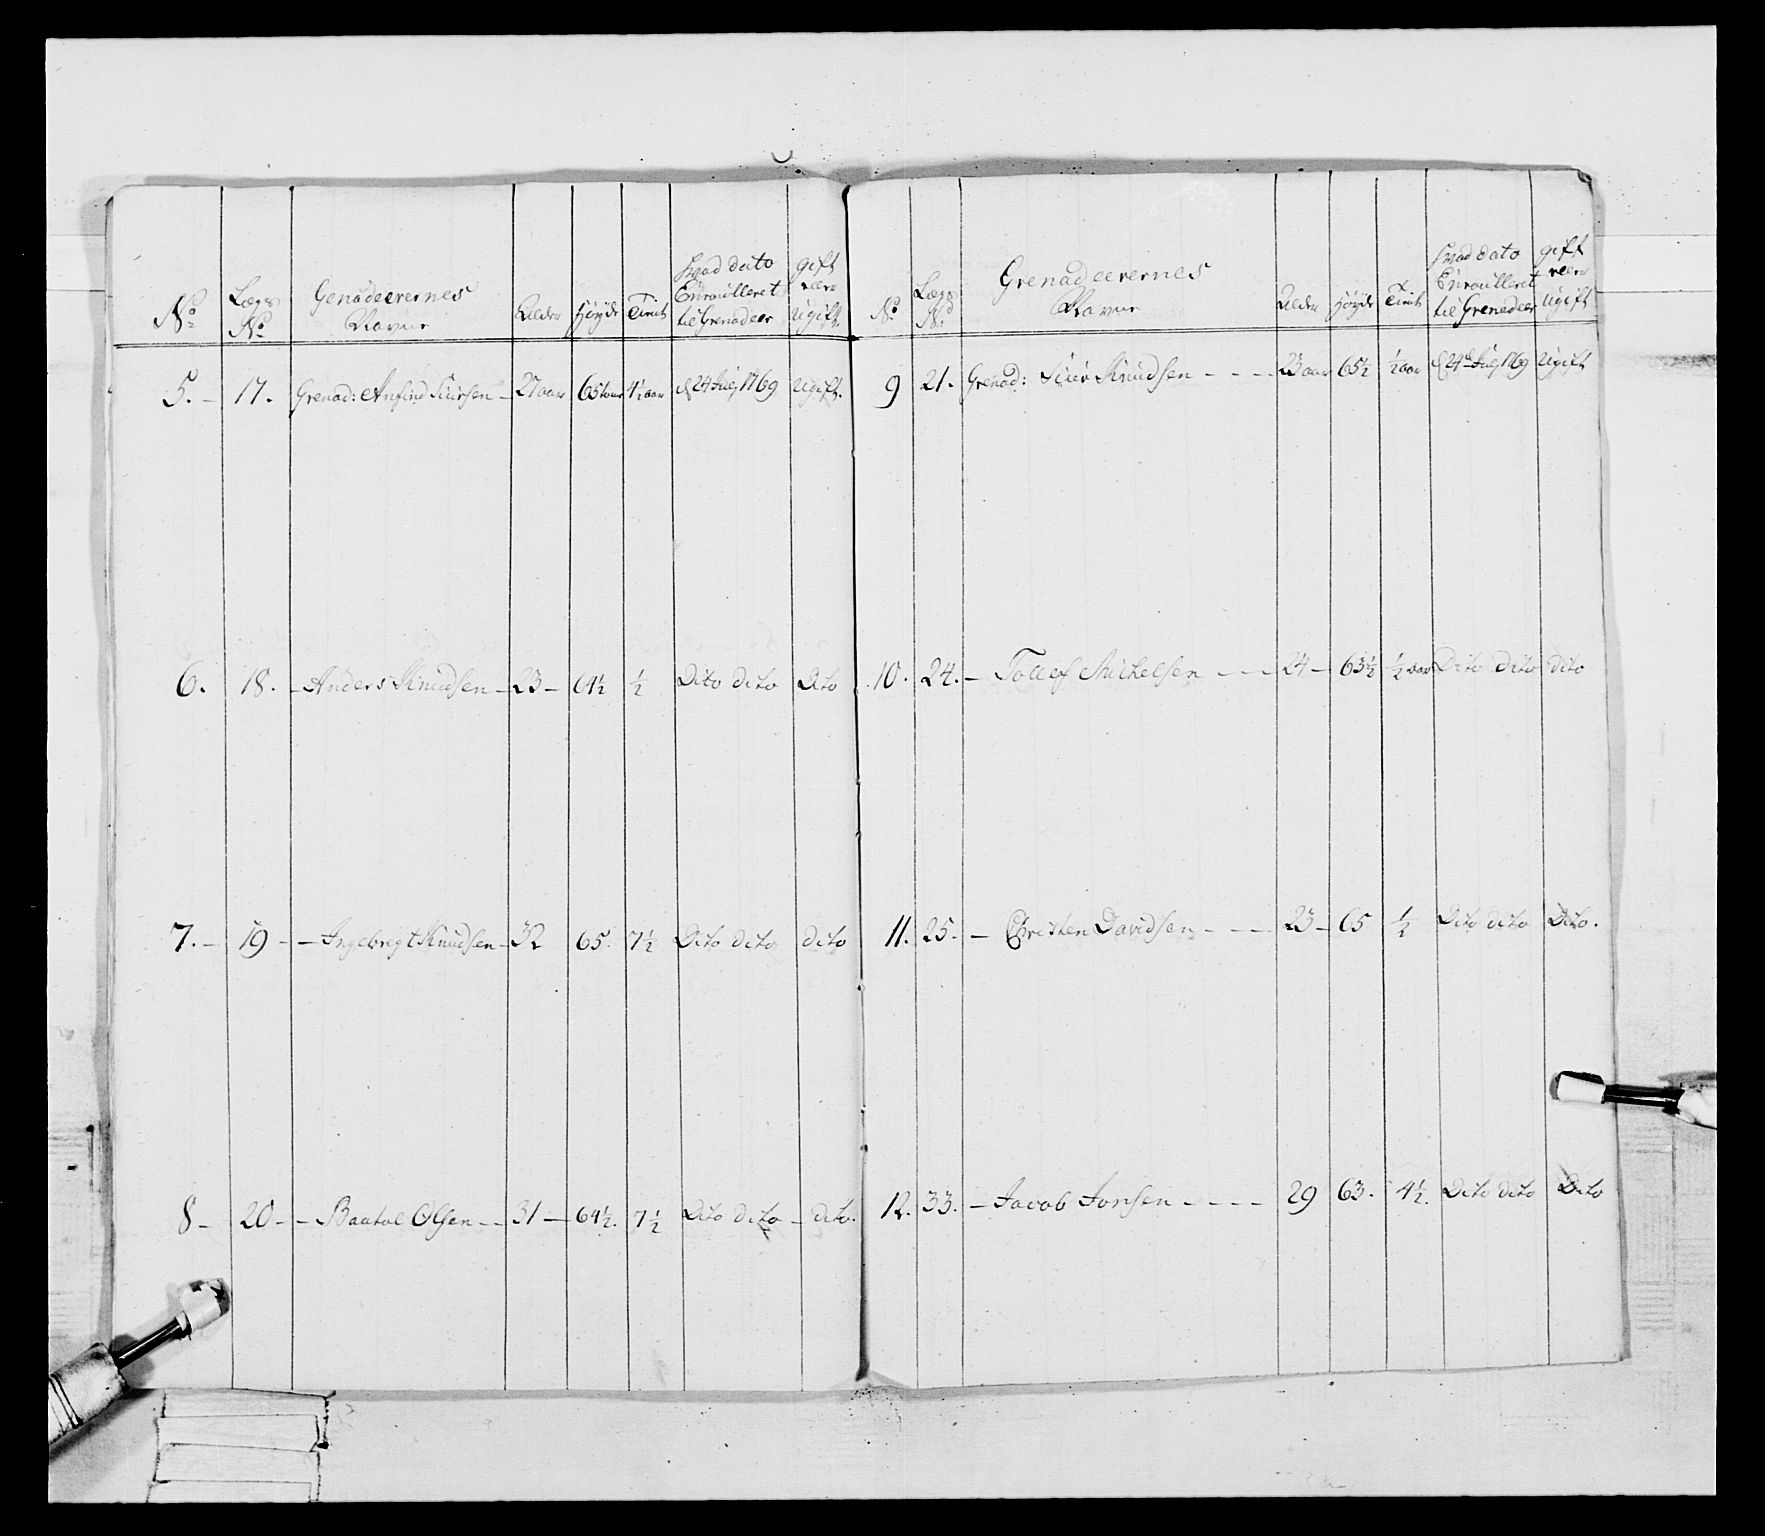 No Lægs No Genadeerernes Navne Alder Høyde Tient Hvad dato Enroulleret til Grenadeer gift eller Ugift
5. 17. Grenad: Anfind Siursen 27 aar 65 tom 4½ aar d 24 Julj 1769 Ugift.
6. 18. Anders Knudsen 23 64½ ½ Dito dito Dito
7. 19 Ingebrigt Knudsen 32 65. 7½ Dito dito dito
8 20 Baatol Olsen 31 64½. 7½ Dito dito dito.
No Lægs No Grenadeerernes Navne Alder Høyde Tient Hvad dato Enroulleret til Grenedeer gift eller Ugift
9 21. Grenad: Siur Knudsen 23 aar 65½ ½ aar d 24de Julj 1769 Ugift
10. 24. Tollef Michelsen 24 63½ ½ aar Dito dito dito
11. 25. Christen Davidsen 23 65 ½ Dito dito Dito.
12. 33. Jacob Jonsen 29 63. 4½. Dito dito Dito